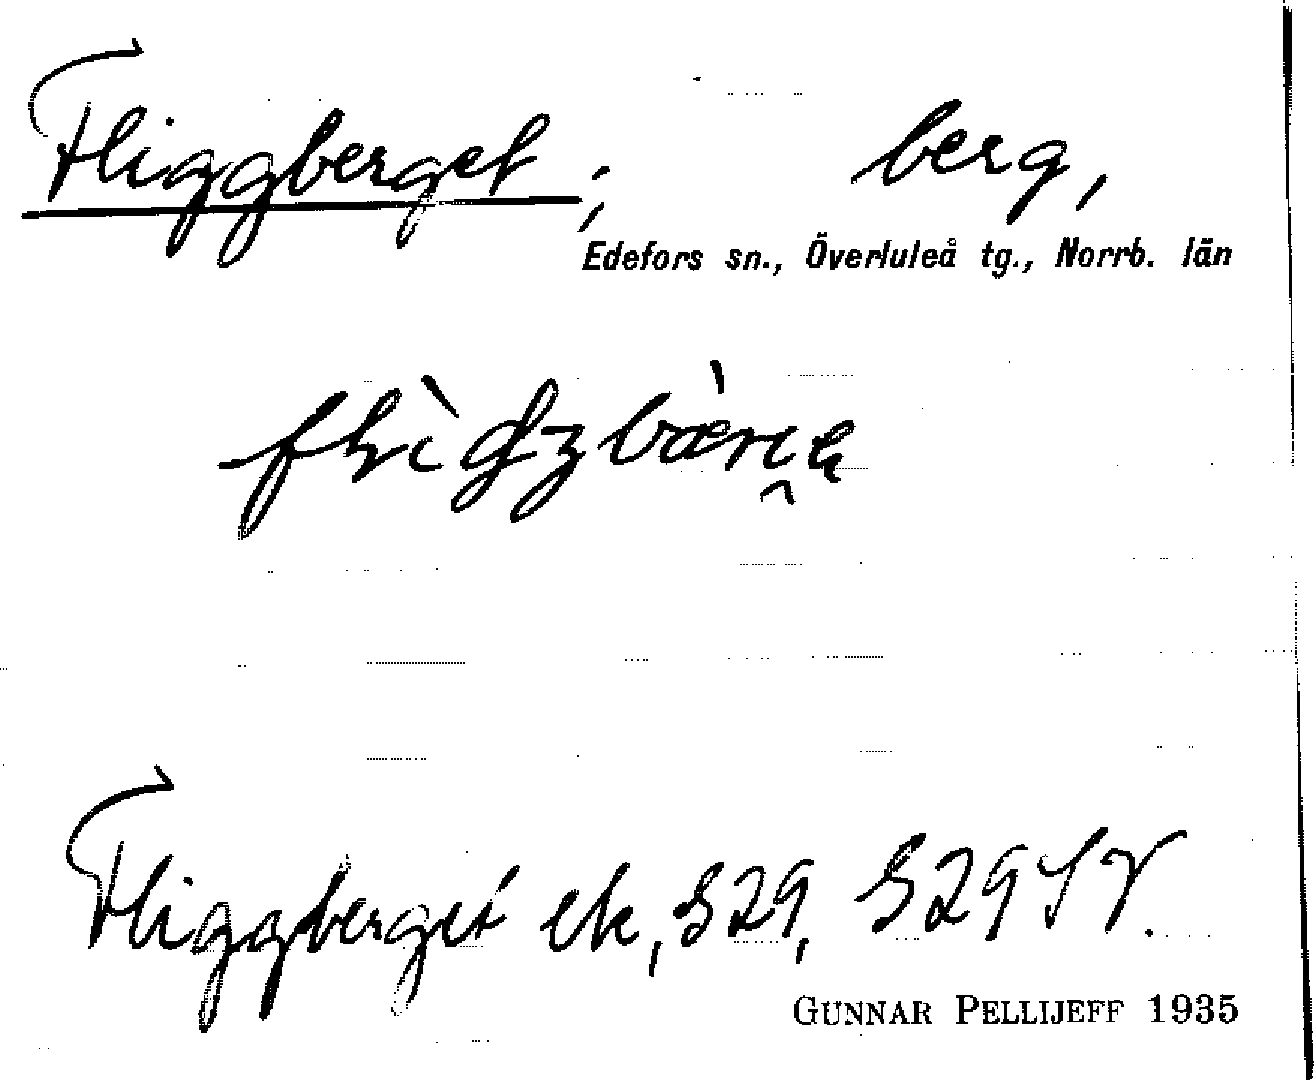 Fliggberget; berg,
Edefors sn., Överluleå tg., Norrb. län
Fliggberget ek, S29, S29 SV.
GUNNAR PELLIJEFF 1935